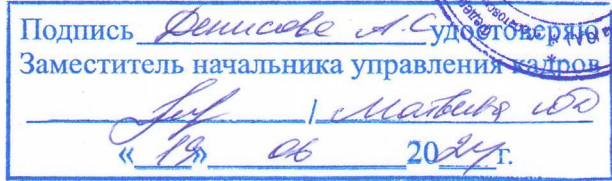 Подпись Денисова А.С. удостоверяю
Заместитель начальника управления кадров
/ Матвеева ЮО
«19» 06 2024г.